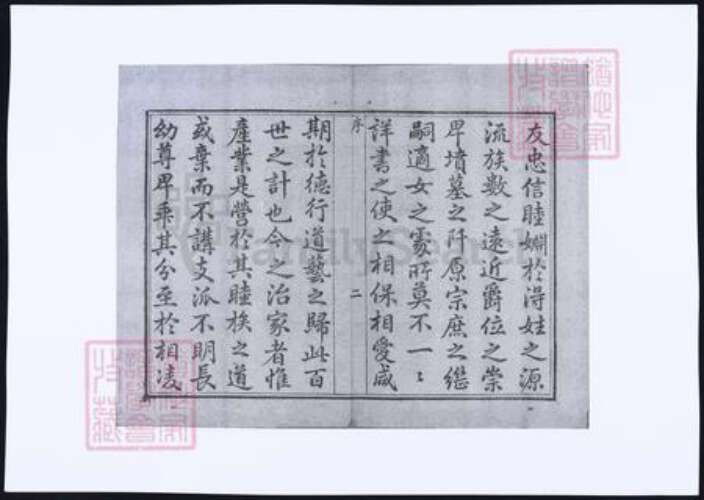 友忠信睦婣於得姓之源
流族數之遠近爵位之崇
卑墳墓之阡原宗庶之繼
嗣適女之家所莫不一〻
詳書之使之相保相愛咸
序
二
期於德行道藝之歸此百
世之計也今之治家者惟
產業是營於其睦族之道
或棄而不講支派不明長
幼尊卑乖其分至於相凌
FamilySearch